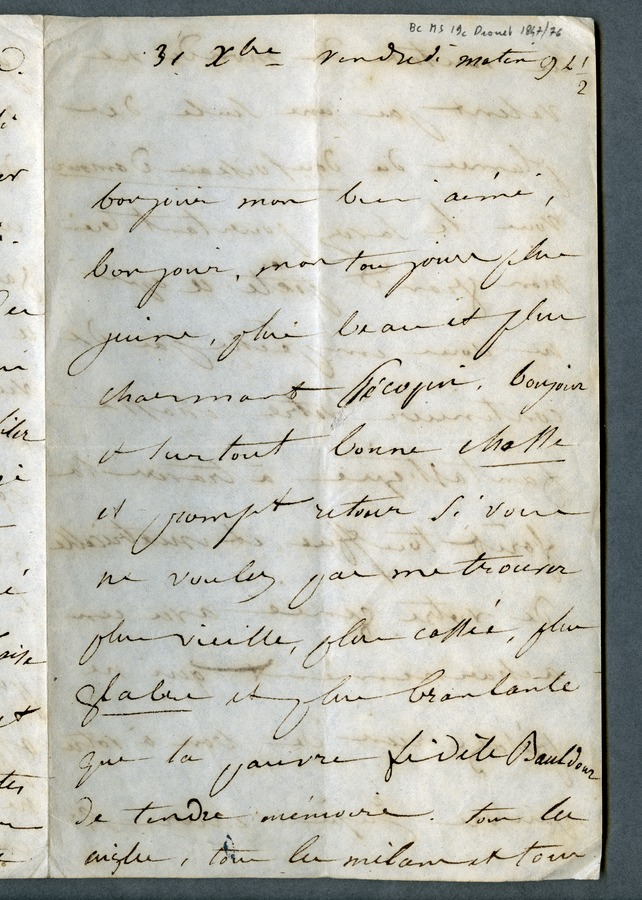 Bc MS 19c Drouet 1847/76
31 Xbre vendredi matin 9 h ½
bonjour mon bien aimé,
bonjour, mon toujours plus
jeune, plus beau et plus
charmant Pécopin, bonjour
et surtout bonne chasse
et prompt retour si vous
ne voulez pas me trouver
plus vieille, plus cassée, plus
glabre et plus branlante
que la pauvre fidèle Bauldour
de tendre mémoire. tous les
aigles, tous les milans et tous